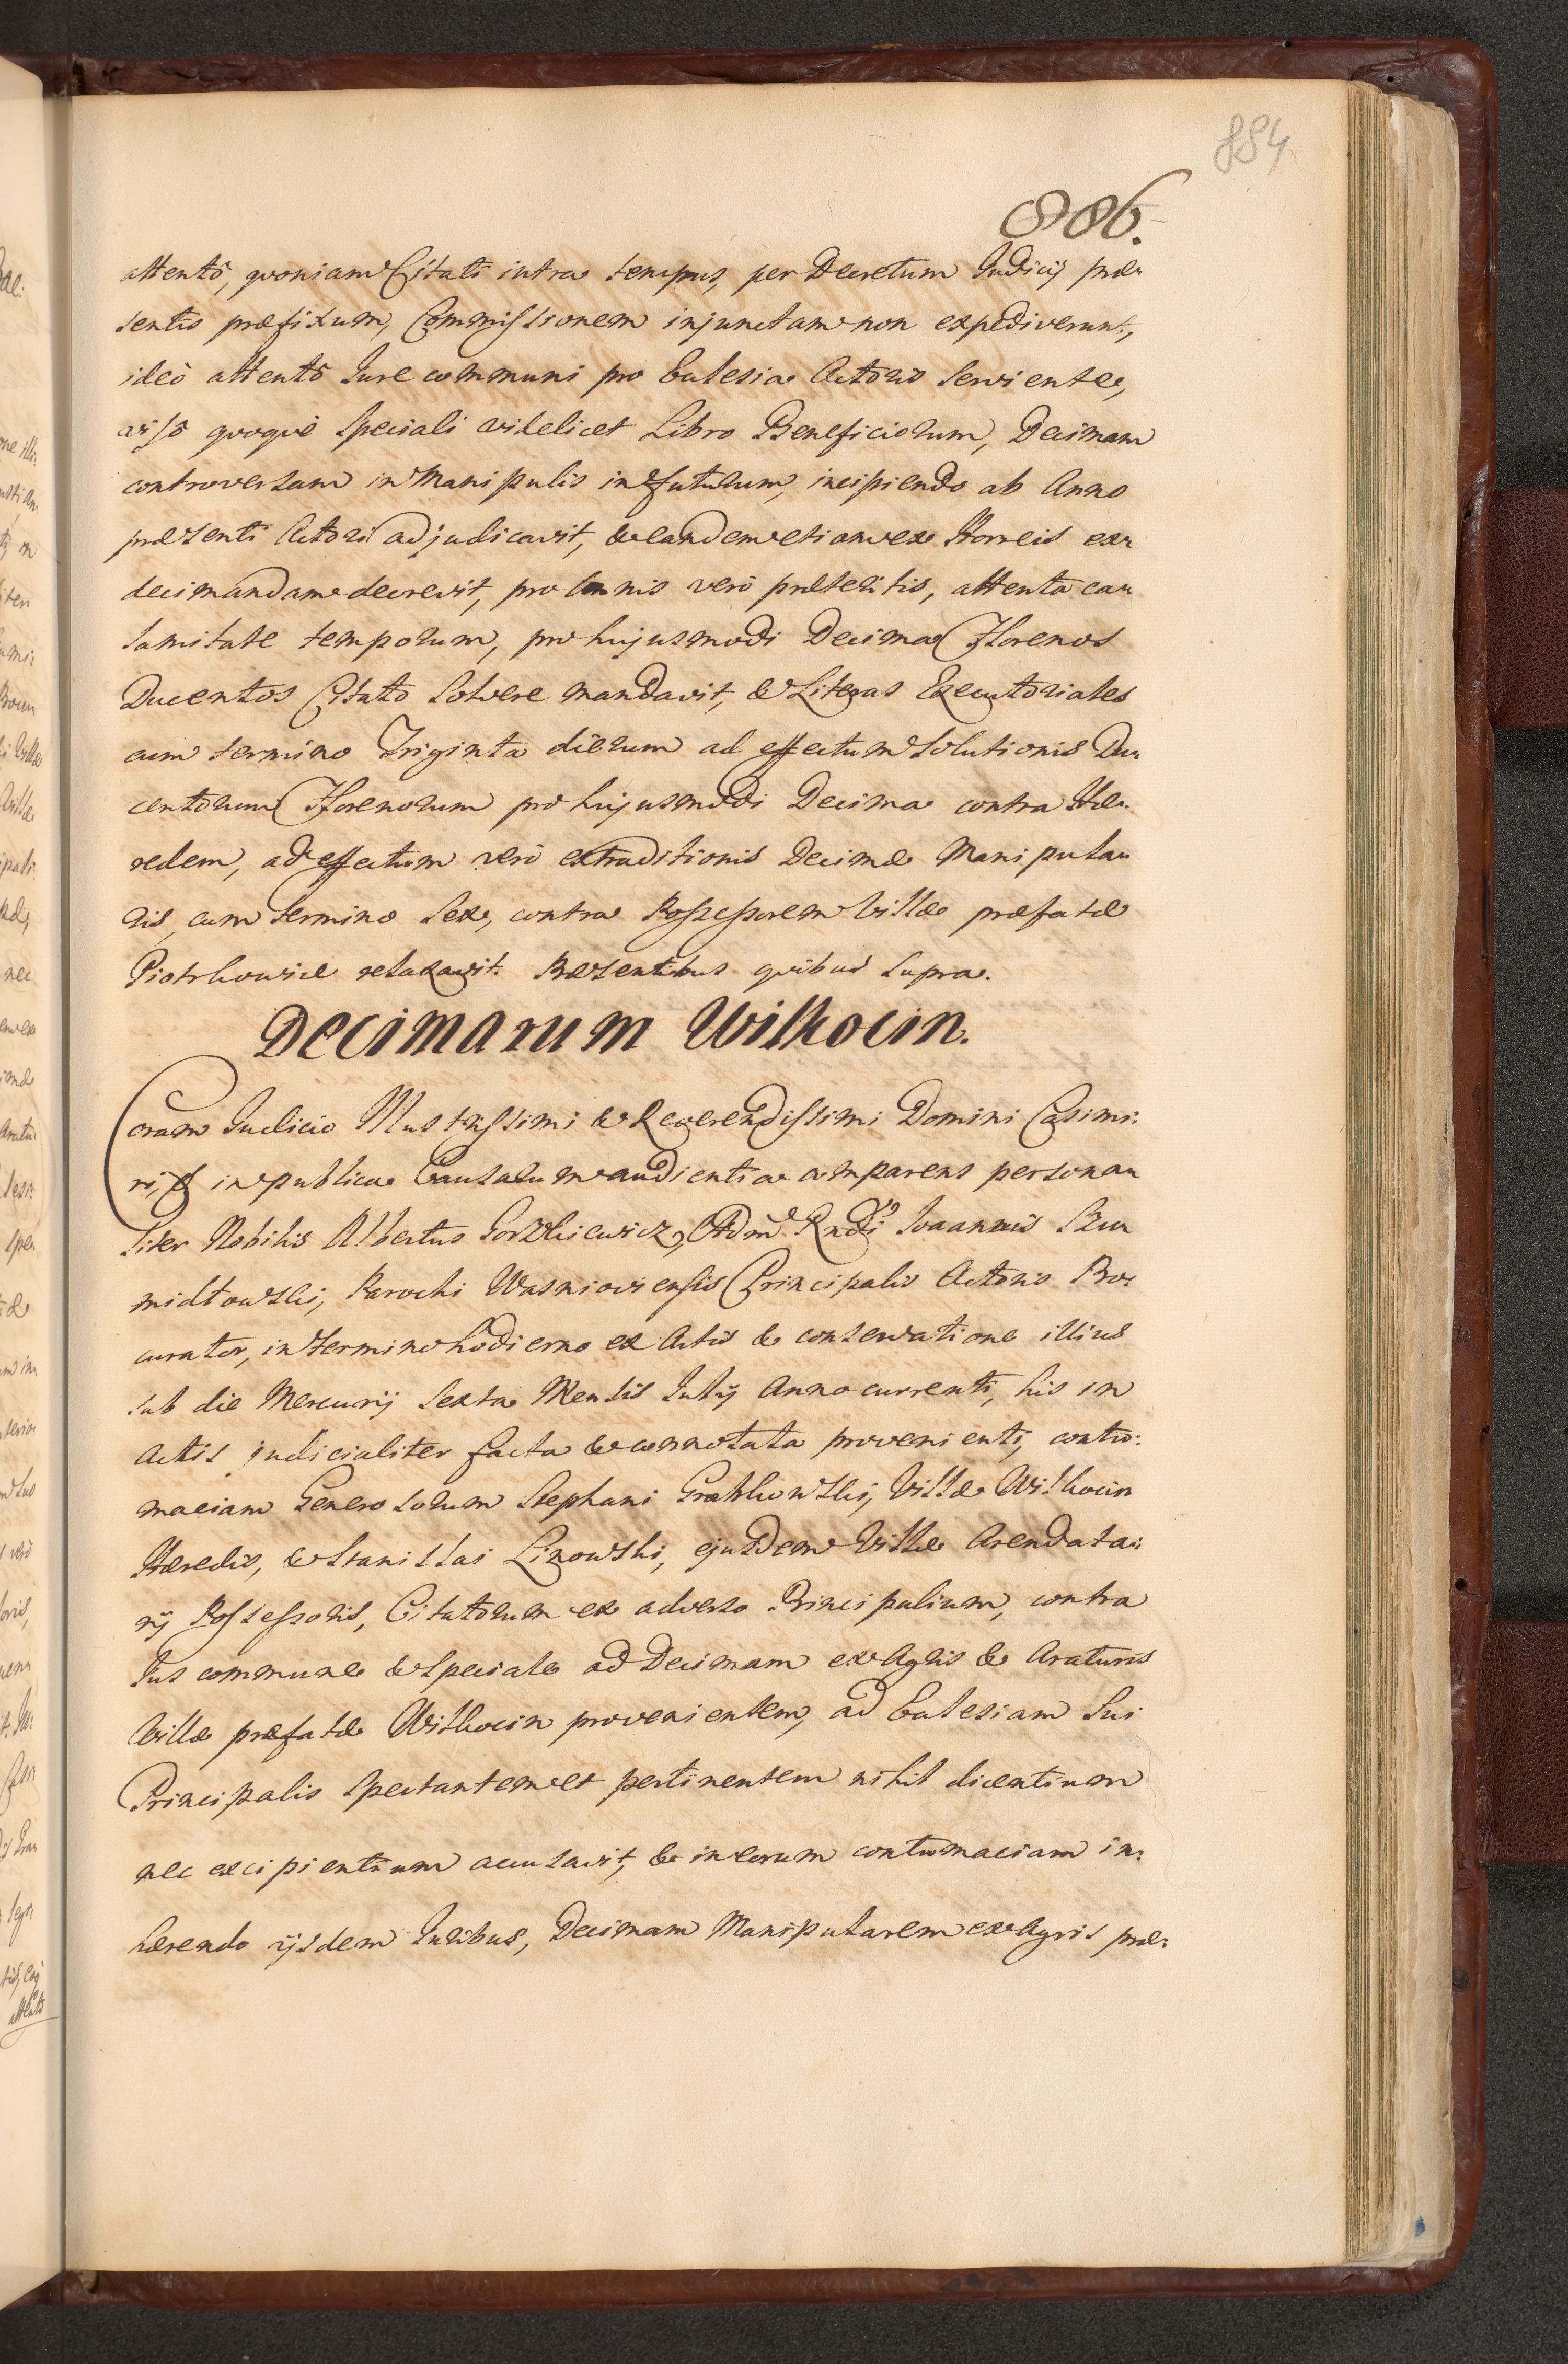 884
886.
attentô, quoniam Citati intra tempus, per Decretum Judicij præ-
sentis præfixum, Commissionem injunctam non expediverunt,
ideò attentô Jure communi pro Eclesia Actoris serviente,
visô quoquè speciali videlicet Libro Beneficiorum, Decimam
controversam in Manipulis in futurum, incipiendo ab Anno
præsenti Actori adjudicavit, & eandem etiam ex Horreis ex-
decimandam decrevit, pro Annis verò præteritis, attenta ca-
lamitate temporum, pro hujusmodi Decima Florenos
Ducentos Citato solvere mandavit, & Literas Executoriales
cum termino Triginta dierum ad effectum solutionis Du-
centorum Florenorum pro hujusmodi Decima contra Hæ-
redem, ad effectum verò extraditionis Decimæ Manipula-
ris, cum termino sex, contra Possessorem Villæ præfatæ
Piotrkowice relaxavit. Præsentibus quibus supra.
Decimarum Wilkocin.
Coram Judicio Illustrissimi & Reverendissimi Domini Casimi:
ri, & in publica Causarum audientia comparens persona-
liter Nobilis Albertus Gorzkiewicz, Adm. Rndi Joannis Szu
midtowski, Parochi Wasnioviensis Principalis Actoris Pro-
curator, in termino hodierno ex Actis & conservatione illius
sub die Mercurij sexta Mensis Julij Anno currenti, his in
Actis judicialiter facta & connotata provenienti, contu:
maciam Generosorum Stephani Grabkowski, Villæ Wilkocin
Hæredis, & Stanislai Linowski, ejusdem Villæ Arendata:
rij Possessoris, Citatorum ex adverso Principalium, contra
Jus commune & speciale ad Decimam ex Agris & Araturis
Villæ præfatæ Wilkocin provenientem, ad Eclesiam sui
Principalis spectantem et pertinentem nihil dicentium
nec excipientium accusavit, & in eorum contumaciam in:
hærendo ijsdem Juribus, Decimam Manipularem ex Agris præ: